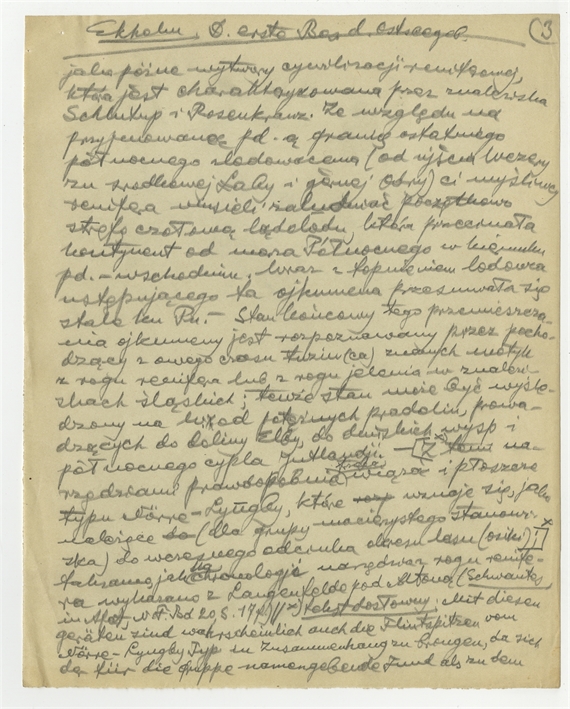 Ekholm, D. erste Bes. d. ostseegeb. (3
jako późne wytwory cywilizacji reniferowej,
która jest charakteryzowana przez znaleziska
Schlutup i Rosenkranz. Ze względu na
przyjmowaną pd.-ą granicę ostatniego
północnego zlodowacenia (od ujścia Wezery
zu środkowej Łaby i górnej Odry) ci myśliwcy
renifera musieli zaludniać początkowo
strefę czołową lądolodu, która przecinała
kontynent od morza Północnego w kierunku
pd.-wschodnim. Wraz z topnieniem lodowca
ustępującego ta ojkumena przesuwała się
stale ku Pn. – Stan końcowy tego przemieszcza-
nia ojkumeny jest rozpoznawany przez pocho-
dzący z owego czasu tuzin(ca) znanych motyk
z rogu renifera lub z rogu jelenia w znalezi-
skach śląskich; tenże stan może być wyśle-
dzony na wschód pradolin, prowa-
dzących do doliny Elby, do duńskich wysp i
północnego cypla Jutlandji. – tems na-
rzędziami prawdopodobnie wiąże i płoszcze
typu Nörre-Lyngby, które wznaje się, jako
należące do (dla grupy macierzystego stanowi-
ska) do wczesnego odcinka okresu lasu (osiki) !
takisamo jak na chronologię narzędzi z rogu renife-
ra wykazano z Langenfelde pod Altoną (Schwantes
in Altot. N. F. Bd 20 S. tekst dosłowny: Mit diesen
geräten sind wahrscheinlich auch die Flintspitzen vom
Nörre-Lyngby Typ in Zusammenhang zu bringen, da sich
der für die Gruppe namengebende Fund als zu dem